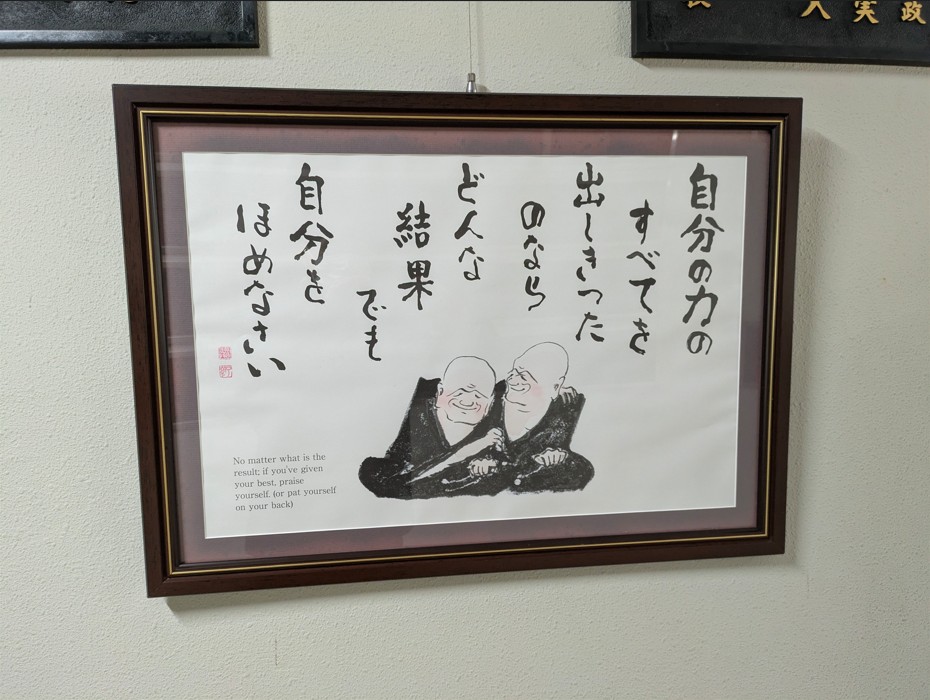 自分の力の
すべてを
出しきった
のなら
どんな
結果
でも
自分を
ほめなさい
No matter what is the
result; if you've given
your best, praise
yourself. (or pat yourself
on your back)